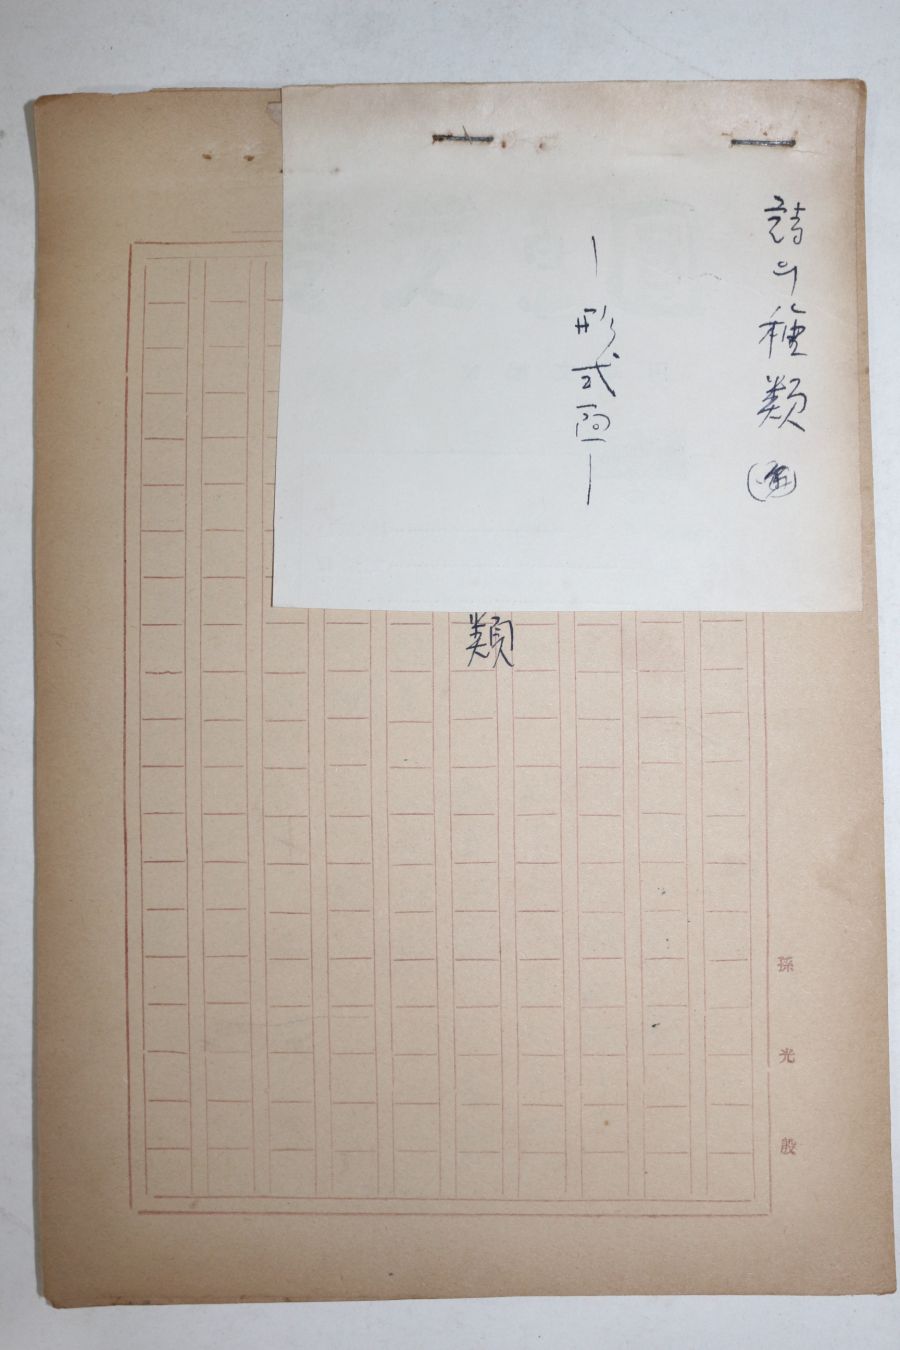 詩의種類
― 形式面 ―
類
孫光殷